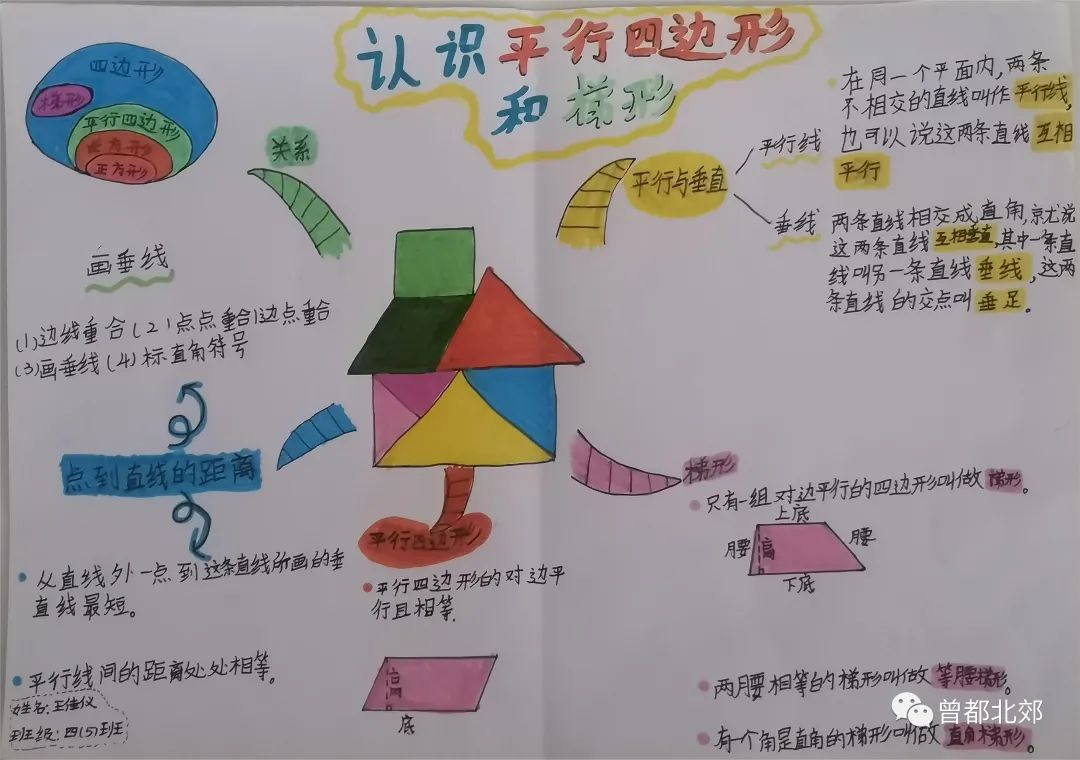 认识平行四边形
和梯形
四边形
梯形
平行四边形
长方形
正方形
关系
平行与垂直
平行线
在同一个平面内,两条
不相交的直线叫作平行线,
也可以说这两条直线互相
平行
垂线
两条直线相交成直角,就说
这两条直线互相垂直,其中一条直
线叫另一条直线垂线,这两
条直线的交点叫垂足。
画垂线
(1)边线重合(2)点点重合边点重合
(3)画垂线(4)标直角符号
点到直线的距离
从直线外一点到这条直线所画的垂
直线最短。
平行线间的距离处处相等。
姓名:王佳仪
班级:四(5)班
平行四边形
平行四边形的对边平
行且相等.
高
底
梯形
只有一组对边平行的四边形叫做梯形。
上底
腰
高
腰
下底
两腰相等的梯形叫做等腰梯形。
有一个角是直角的梯形叫做直角梯形。
曾都北郊